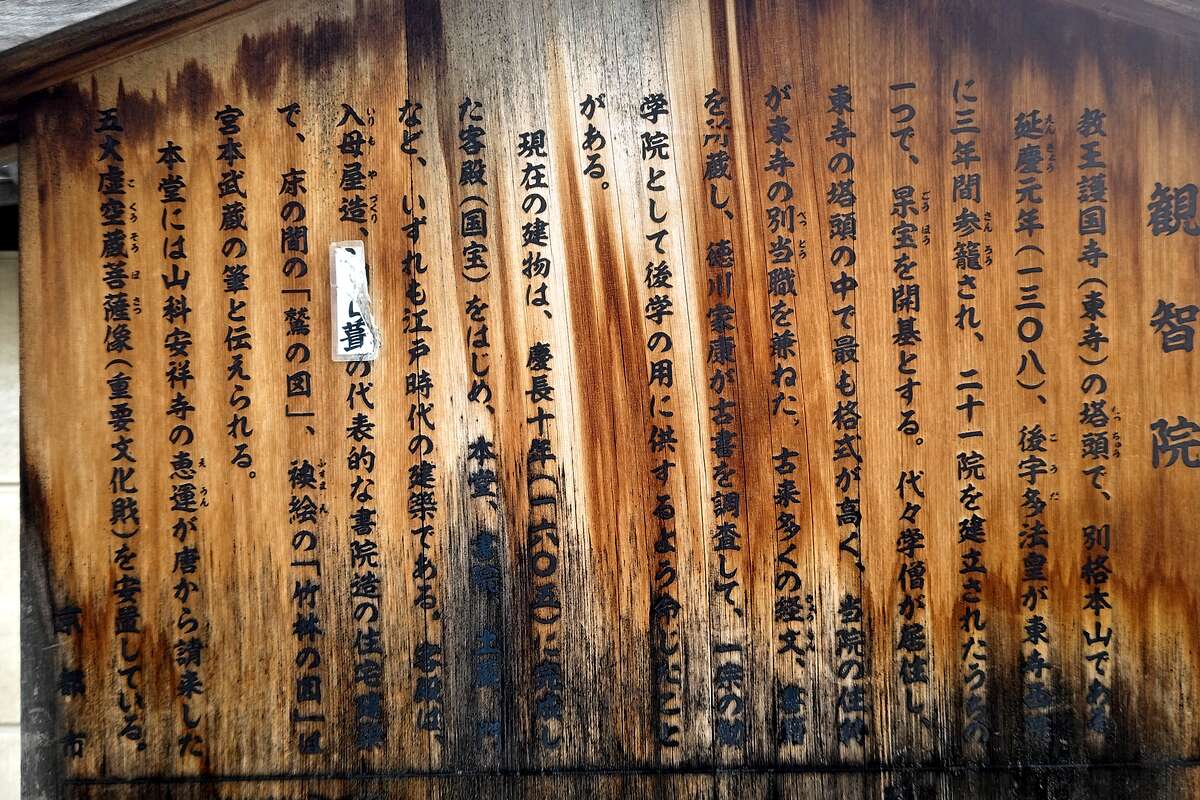 観智院
教王護国寺(東寺)の塔頭で、別格本山である
延慶元年(一三〇八)、後宇多法皇が東寺
に三年間参籠され、二十一院を建立されたうちの
一つで、杲宝を開基とする。代々学僧が居住し、
東寺の塔頭の中で最も格式が高く、当院の住
が東寺の別当職を兼ねた。古来多くの経文、書
を所蔵し、徳川家康が古書を調査して、一宗の勧
学院として後学の用に供するよう命じたこと
がある。
現在の建物は、慶長十年(一六〇五)に完成し
た客殿(国宝)をはじめ、本堂、書院、土蔵、門
など、いずれも江戸時代の建築である。客殿は、
入母屋造、葺の代表的な書院造の住宅建築
で、床の間の「鷲の図」、襖絵の「竹林の図」は
宮本武蔵の筆と伝えられる。
本堂には山科安祥寺の恵運が唐から請来した
五大虚空蔵菩薩像(重要文化財)を安置している。
京都市